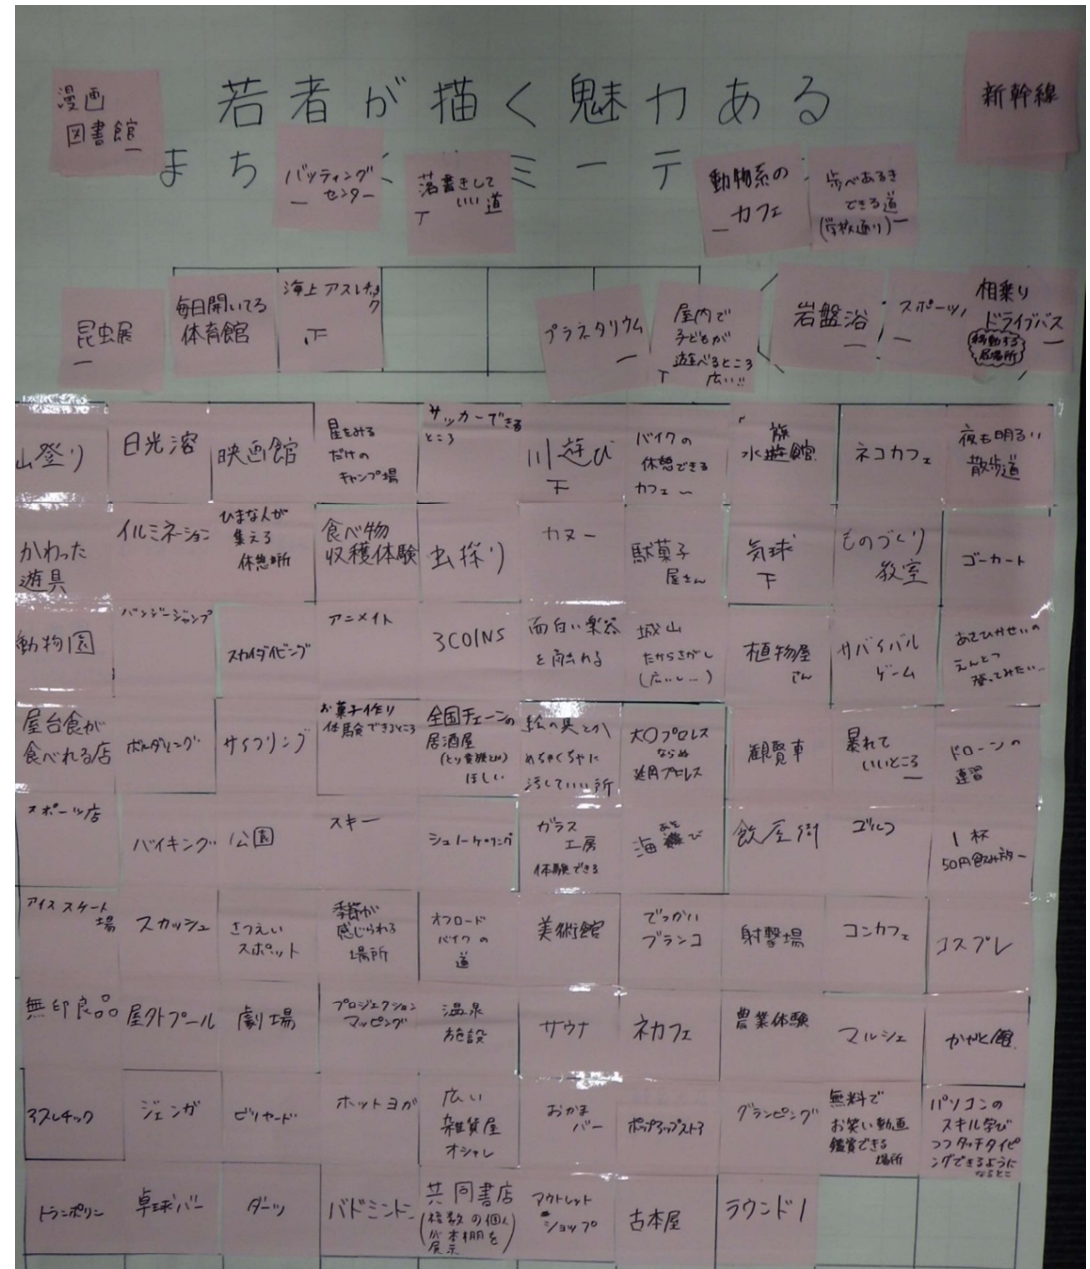 若者が描く魅力ある
まち
ミーテ
漫画
図書館
新幹線
バッティング
センター
落書きして
いい道
動物系の
カフェ
歩べあるき
できる道
(学校通り)
昆虫展
毎日開いてる
体育館
海上アスレチック
下
プラネタリウム
屋内で
子どもが
遊べるところ
広い!!
岩盤浴
スポーツ
相乗り
ドライブバス
移動する
居場所
山登り
日光浴
映画館
星をみる
だけの
キャンプ場
サッカーできる
ところ
川遊び
下
バイクの
休憩できる
カフェ
水族館
ネコカフェ
夜も明るい
散歩道
かわった
遊具
イルミネーション
ひまな人が
集える
休憩所
食べ物
収穫体験
虫採り
カヌー
駄菓子
屋さん
気球
下
ものづくり
教室
ゴーカート
動物園
バンジージャンプ
スカイダイビング
アニメイト
3COINS
面白い楽器
城山
たからさがし
(広いし...)
植物屋
さん
サバイバル
ゲーム
えんとつ
登ってみたい...
屋台食が
食べれる店
ボルダリング
サイクリング
お菓子作り
体験できるところ
全国チェーンの
居酒屋
(とり貴族とか)
ほしい
絵の具とか
めちゃくちゃに
汚していい所
大〇プロレス
ならぬ
延岡プロレス
観覧車
暴れて
いいところ
ドローンの
練習
スポーツ店
バイキング
公園
スキー
シュノーケリング
ガラス
工房
体験できる
海遊び
飲屋街
ゴルフ
1杯
50円飲み放
アイススケート
場
スカッシュ
さつえい
スポット
季節が
感じられる
場所
オフロード
バイクの
道
美術館
でっかい
ブランコ
射撃場
コンカフェ
コスプレ
無印良品
屋外プール
劇場
プロジェクション
マッピング
温泉
施設
サウナ
ネカフェ
農業体験
マルシェ
かがく館
アスレチック
ジェンガ
ビリヤード
ホットヨガ
広い
雑貨屋
オシャレ
おかま
バー
ポップアップストア
グランピング
無料で
お笑い動画
鑑賞できる
場所
パソコンの
スキル学び
つつタッチタイピ
ングできるように
なるとこ
トランポリン
卓球バー
ダーツ
バドミントン
共同書店
(複数の個人
が本棚を
展示)
アウトレット
ショップ
古本屋
ラウンド1